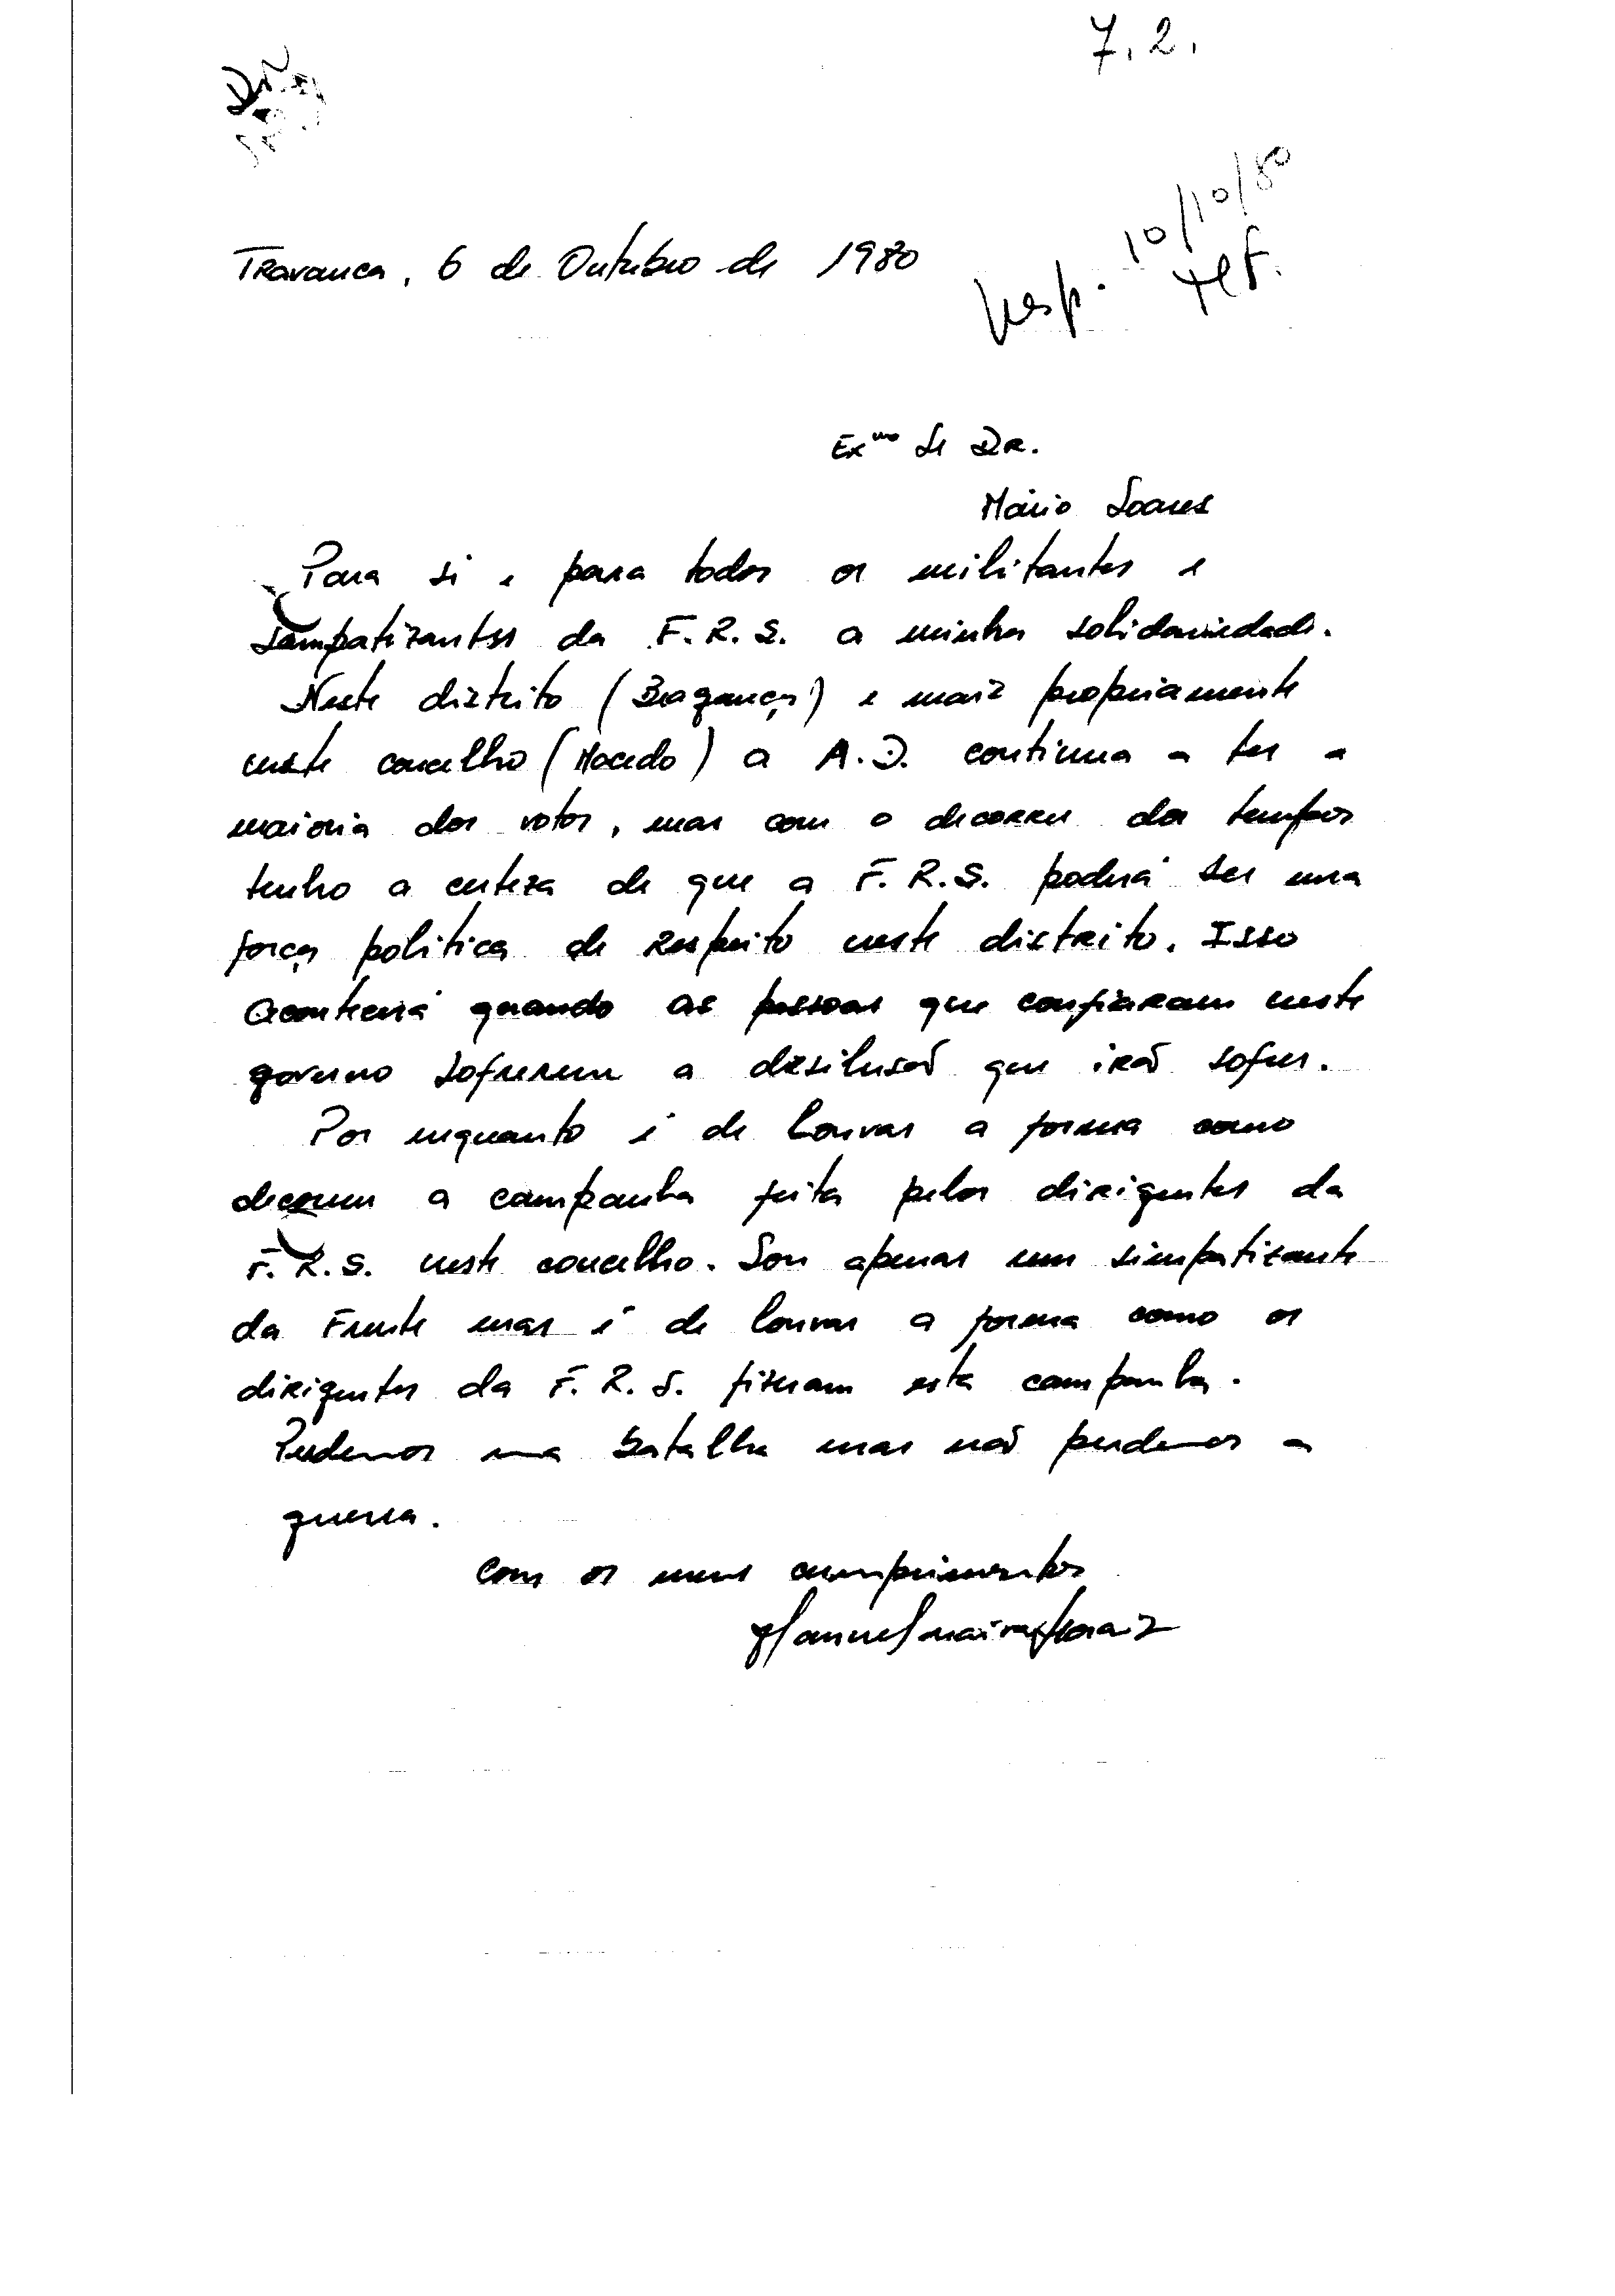 7.2.
10/10/80
Resp. telf.
Travanca, 6 de Outubro de 1980
Exmo Sr DR.
Mário Soares
Para si e para todos os militantes e
simpatizantes da F.R.S. a minha solidariedade.
Neste distrito (Bragança) e mais propriamente
neste concelho (Macedo) a A.D. continua a ter a
maioria dos votos, mas com o decorrer dos tempos
tenho a certeza de que a F.R.S. poderá ser uma
força politica de respeito neste distrito. Isso
acontecerá quando as pessoas que confiaram neste
governo sofrerem a desilusão que irão sofrer.
Por enquanto é de louvar a forma como
decorreu a campanha feita pelos dirigentes da
F.R.S. neste concelho. Sou apenas um simpatizante
da Frente mas é de louvar a forma como os
dirigentes da F.R.S. fizeram esta campanha.
Perdemos uma batalha mas não perdemos a
guerra.
Com os meus cumprimentos
Manuel